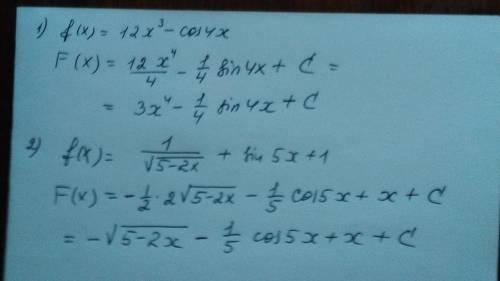 1) f(x) = 12x³ - cos4x
F(x) = 12x⁴/4 - 1/4 sin4x + C =
= 3x⁴ - 1/4 sin4x + C
2) f(x) = 1/√(5-2x) + sin 5x + 1
F(x) = -1/2 · 2√(5-2x) - 1/5 cos5x + x + C
= -√(5-2x) - 1/5 cos5x + x + C